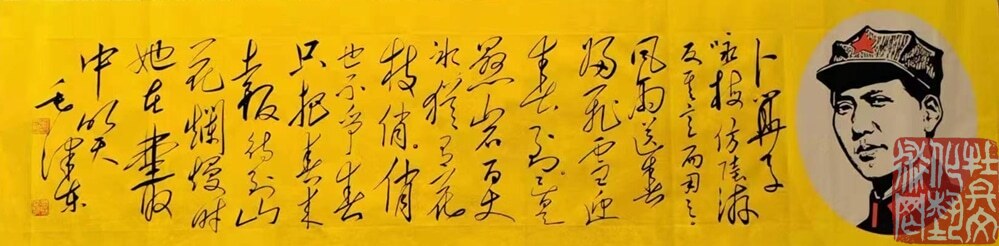 卜算子
咏梅仿陆游
反其意而用之
风雨送春
归飞雪迎
春到已是
悬崖百丈
冰犹有花
枝俏俏
也不争春
只把春来
报待到山
花烂熳时
她在丛
中笑
毛泽东